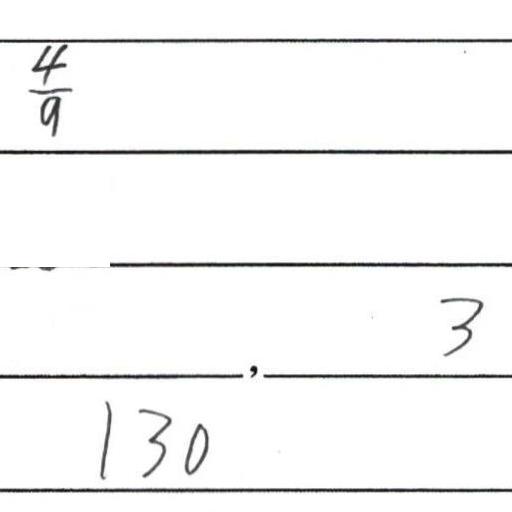 4/9
, 3
130